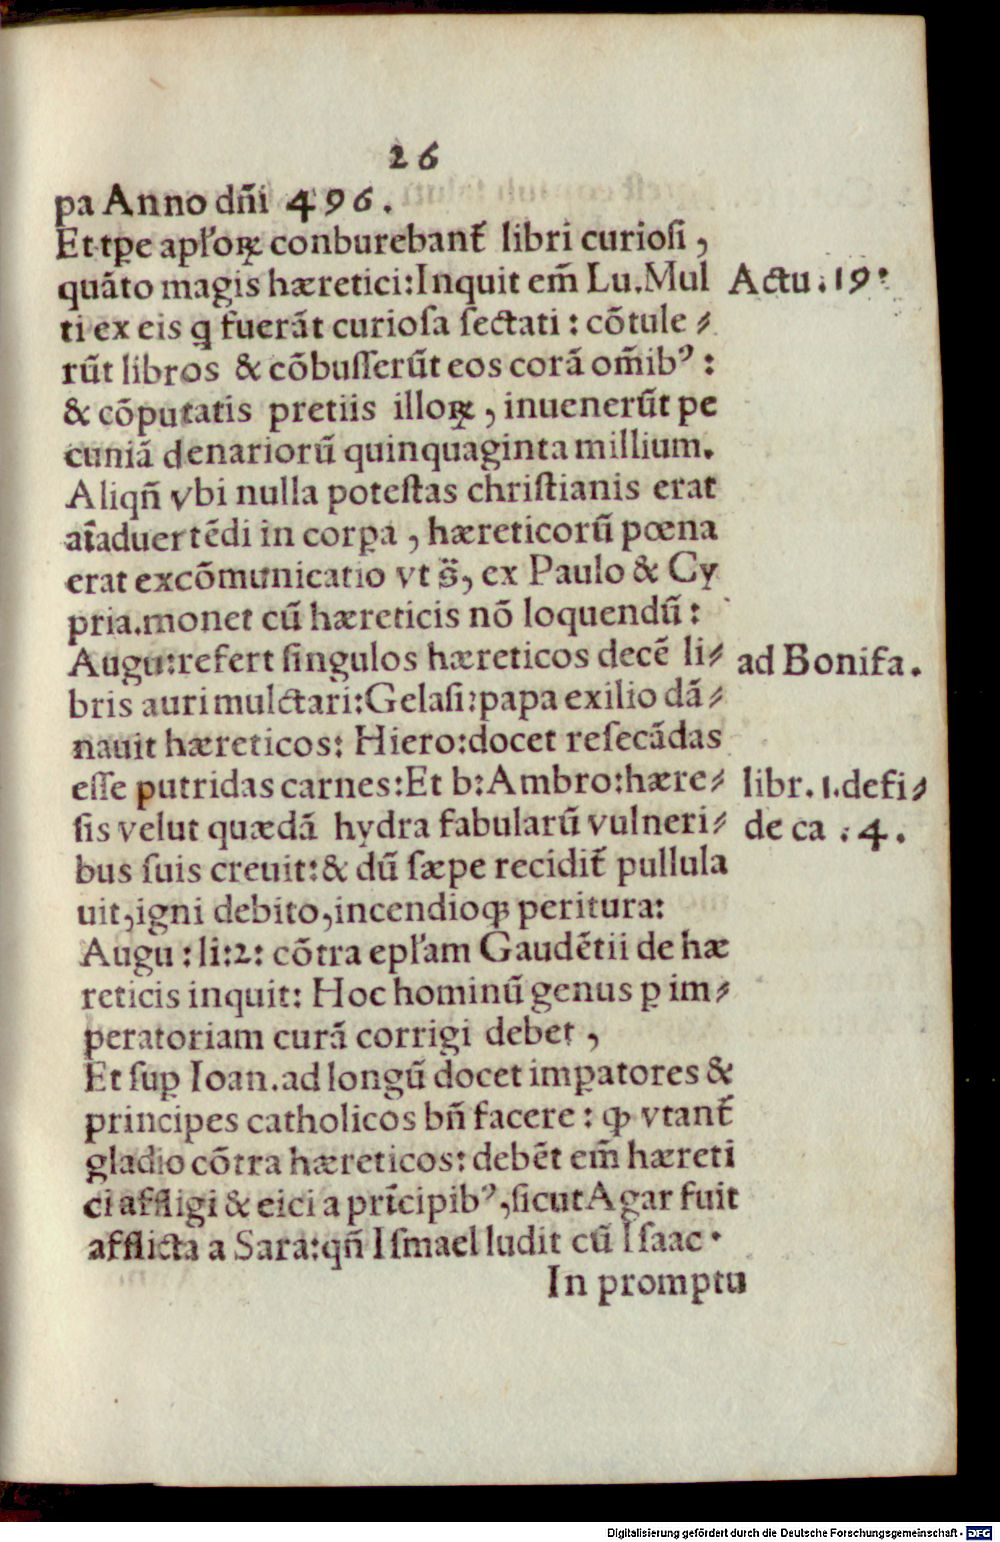 26
pa Anno dñi 496.
Et tꝑe apl’oꝝ conburebant̃ libri curiosi,
quãto magis hæretici: Inquit em̃ Lu. Mul
Actu. 19:
ti ex eis q fuerãt curiosa sectati: cõtule⸗
rũt libros & cõbusserũt eos corã om̃ibꝰ:
& cõputatis pretiis illoꝝ, inuenerũt pe
cuniã denariorũ quinquaginta millium.
Aliqñ vbi nulla potestas christianis erat
aĩaduertẽdi in corꝑa, hæreticorũ pœna
erat excõmunicatio vt s̃, ex Paulo & Cy
pria. monet cũ hæreticis nõ loquendũ:
Augu: refert singulos hæreticos decẽ li⸗
ad Bonifa.
bris auri mulctari: Gelasi: papa exilio dã⸗
nauit hæreticos: Hiero: docet resecãdas
esse putridas carnes: Et b: Ambro: hære⸗
libr. 1. de fi⸗
sis velut quædã hydra fabularũ vulneri⸗
de ca : 4.
bus suis creuit: & dũ sæpe recidit̃ pullula
uit, igni debito, incendioqꝫ peritura:
Augu: li: 2: cõtra epl’am Gaudẽtii de hæ
reticis inquit: Hoc hominũ genus ꝑ im⸗
peratoriam curã corrigi debet,
Et suꝑ Ioan. ad longũ docet imꝑatores &
principes catholicos bñ facere: ꝙ vtant̃
gladio cõtra hæreticos: debẽt em̃ hæreti
ci affligi & eici a prĩcipibꝰ, sicut Agar fuit
afflicta a Sara: qñ Ismael ludit cũ Isaac.
In promptu
Digitalisierung gefördert durch die Deutsche Forschungsgemeinschaft - DFG